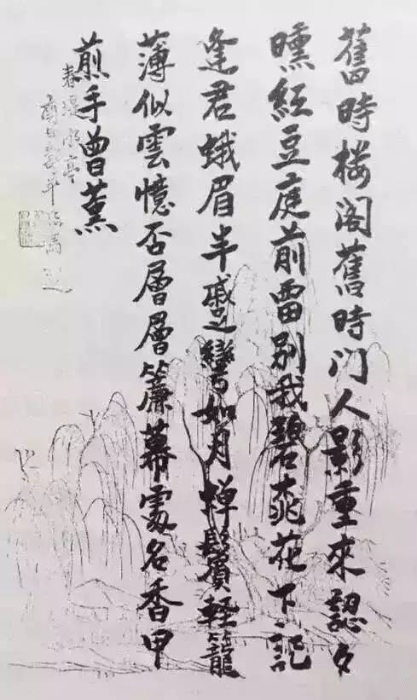 舊時楼閣舊時门人影重來認夕
曛紅豆庭前留别我碧桃花下記
逢君蛾眉半蹙彎如月蝉鬢輕籠
薄似雲憶否層層簾幕處名香甲
煎手曾薰